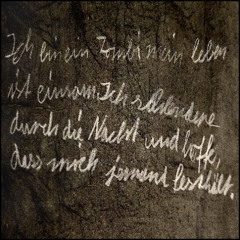 Ich ein ein Zombi mein leben
ist einsam. Ich schlendere
durch die Nacht und hoffe,
dass mich jemand festhält.